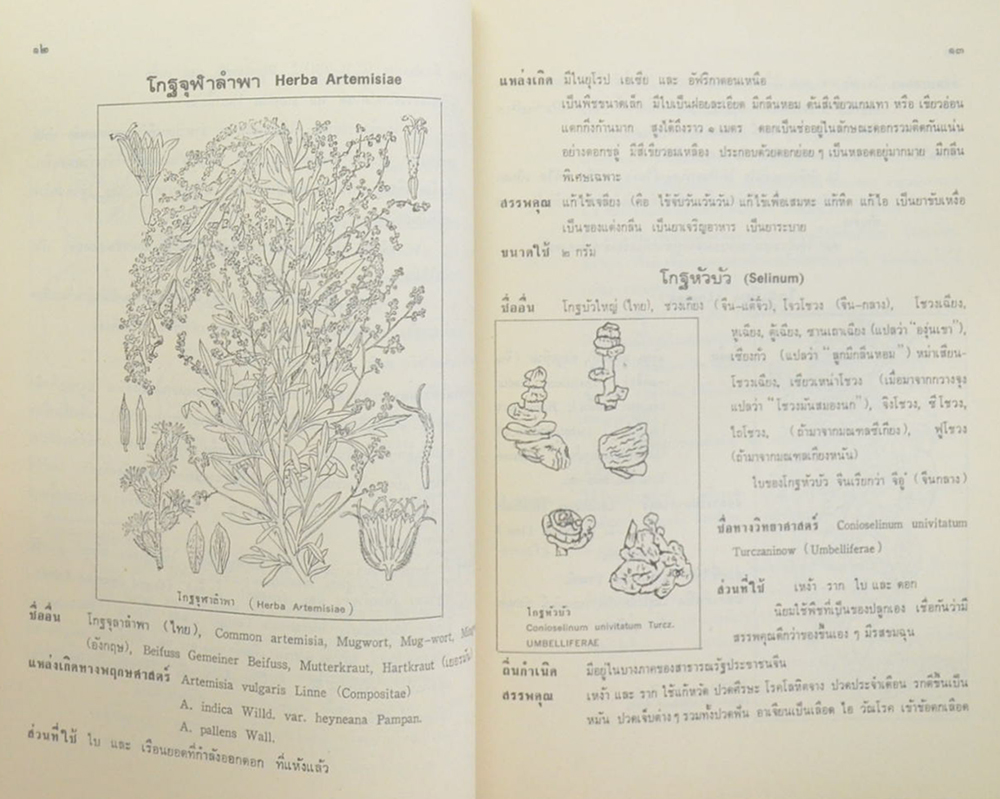 ๑๒
โกฐจุฬาลำพา Herba Artemisiae
โกฐจุฬาลำพา (Herba Artemisiae)
ชื่ออื่น โกฐจุลาลำพา (ไทย), Common artemisia, Mugwort, Mug-wort,
(อังกฤษ), Beifuss Gemeiner Beifuss, Mutterkraut, Hartkraut
แหล่งเกิดทางพฤกษศาสตร์ Artemisia vulgaris Linne (Compositae)
A. indica Willd. var. heyneana Pampan.
A. pallens Wall.
ส่วนที่ใช้ ใบ และ เรือนยอดที่กำลังออกดอก ที่แห้งแล้ว
๑๓
แหล่งเกิด มีในยุโรป เอเซีย และ อัฟริกาตอนเหนือ
เป็นพืชขนาดเล็ก มีใบเป็นฝอยละเอียด มีกลิ่นหอม ต้นสีเขียวแกมเทา หรือ เขียวอ่อน
แตกกิ่งก้านมาก สูงได้ถึงราว ๑ เมตร ดอกเป็นช่ออยู่ในลักษณะดอกรวมติดกันแน่น
อย่างดอกขลู่ มีสีเขียวอมเหลือง ประกอบด้วยดอกย่อย ๆ เป็นหลอดอยู่มากมาย มีกลิ่น
พิเศษเฉพาะ
สรรพคุณ แก้ไข้เจลียง (คือ ไข้จับวันเว้นวัน) แก้ไข้เพื่อเสมหะ แก้หืด แก้ไอ เป็นยาขับเหงื่อ
เป็นของแต่งกลิ่น เป็นยาเจริญอาหาร เป็นยาระบาย
ขนาดใช้ ๒ กรัม
โกฐหัวบัว (Selinum)
ชื่ออื่น โกฐบัวใหญ่ (ไทย), ชวงเกียง (จีน-แต้จิ๋ว), โจวโชวง (จีน-กลาง), โชวงเฉียง,
หูเฉียง, ตู้เฉียง, ซานเถาเฉียง (แปลว่า "องุ่นเขา"),
เซียงกัว (แปลว่า "ลูกมีกลิ่นหอม") หม่าเสียน-
โชวงเฉียง, เชียวเหน่าโชวง (เมื่อมาจากกวางจุง
แปลว่า "โชวงมันสมองนก"), จิงโชวง, ซีโชวง,
ไถโชวง, (ถ้ามาจากมณฑลซีเกียง), ฟูโชวง
(ถ้ามาจากมณฑลเกียงหนัน)
ใบของโกฐหัวบัว จีนเรียกว่า จีอู๋ (จีนกลาง)
โกฐหัวบัว
Conioselinum univitatum Turcz.
UMBELLIFERAE
ชื่อทางวิทยาศาสตร์ Conioselinum univitatum
Turczaninow (Umbelliferae)
ส่วนที่ใช้ เหง้า ราก ใบ และ ดอก
นิยมใช้พืชที่เป็นของปลูกเอง เชื่อกันว่ามี
สรรพคุณดีกว่าของขึ้นเอง ๆ มีรสขมฉุน
ถิ่นกำเนิด มีอยู่ในบางภาคของสาธารณรัฐประชาชนจีน
สรรพคุณ เหง้า และ ราก ใช้แก้หวัด ปวดศีรษะ โรคโลหิตจาง ปวดประจำเดือน รกตีขึ้นเป็น
หมัน ปวดเจ็บต่างๆ รวมทั้งปวดฟัน อาเจียนเป็นเลือด ไอ วัณโรค เข้าข้อตกเลือด